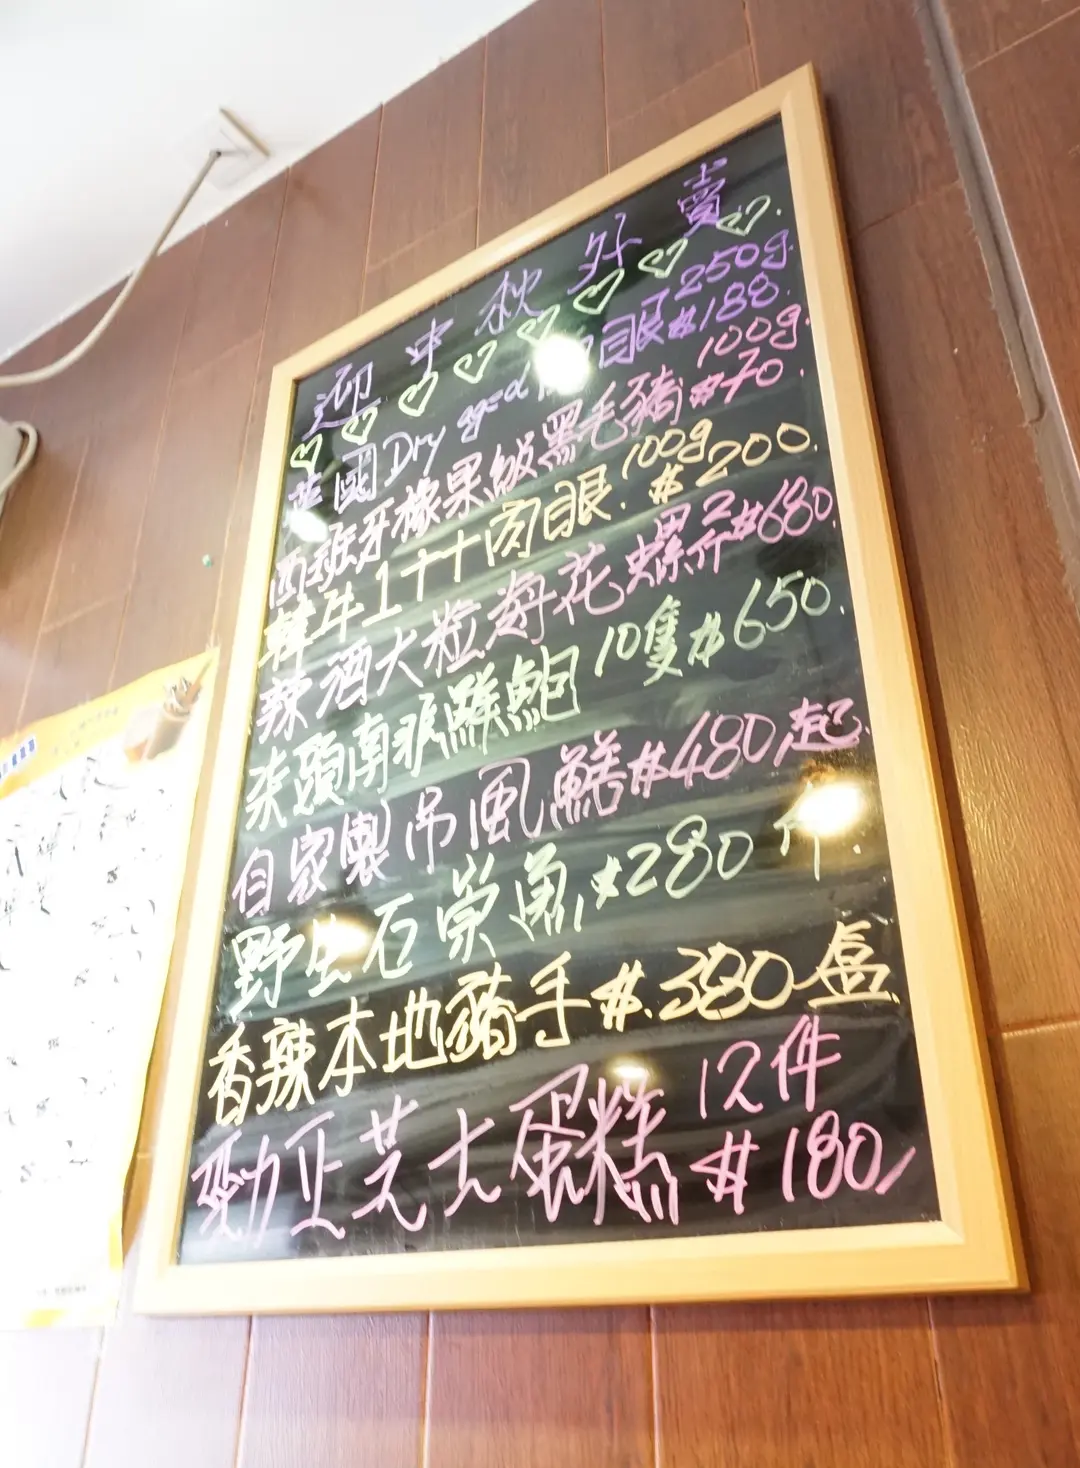 迎中秋好賣
♡♡♡♡♡♡♡♡
英國Dry aged 肉眼 250g #188.
西班牙橡果級黑毛豬 100g #70.
韓牛1++肉眼. 100g #200.
辣酒大粒海花螺 2斤#680.
南非鮮鮑 10隻#650.
自家製吊風鱔#480起.
野生石崇魚, #280斤.
香辣本地豬手#380盒.
勁正芝士蛋糕 12件 #180